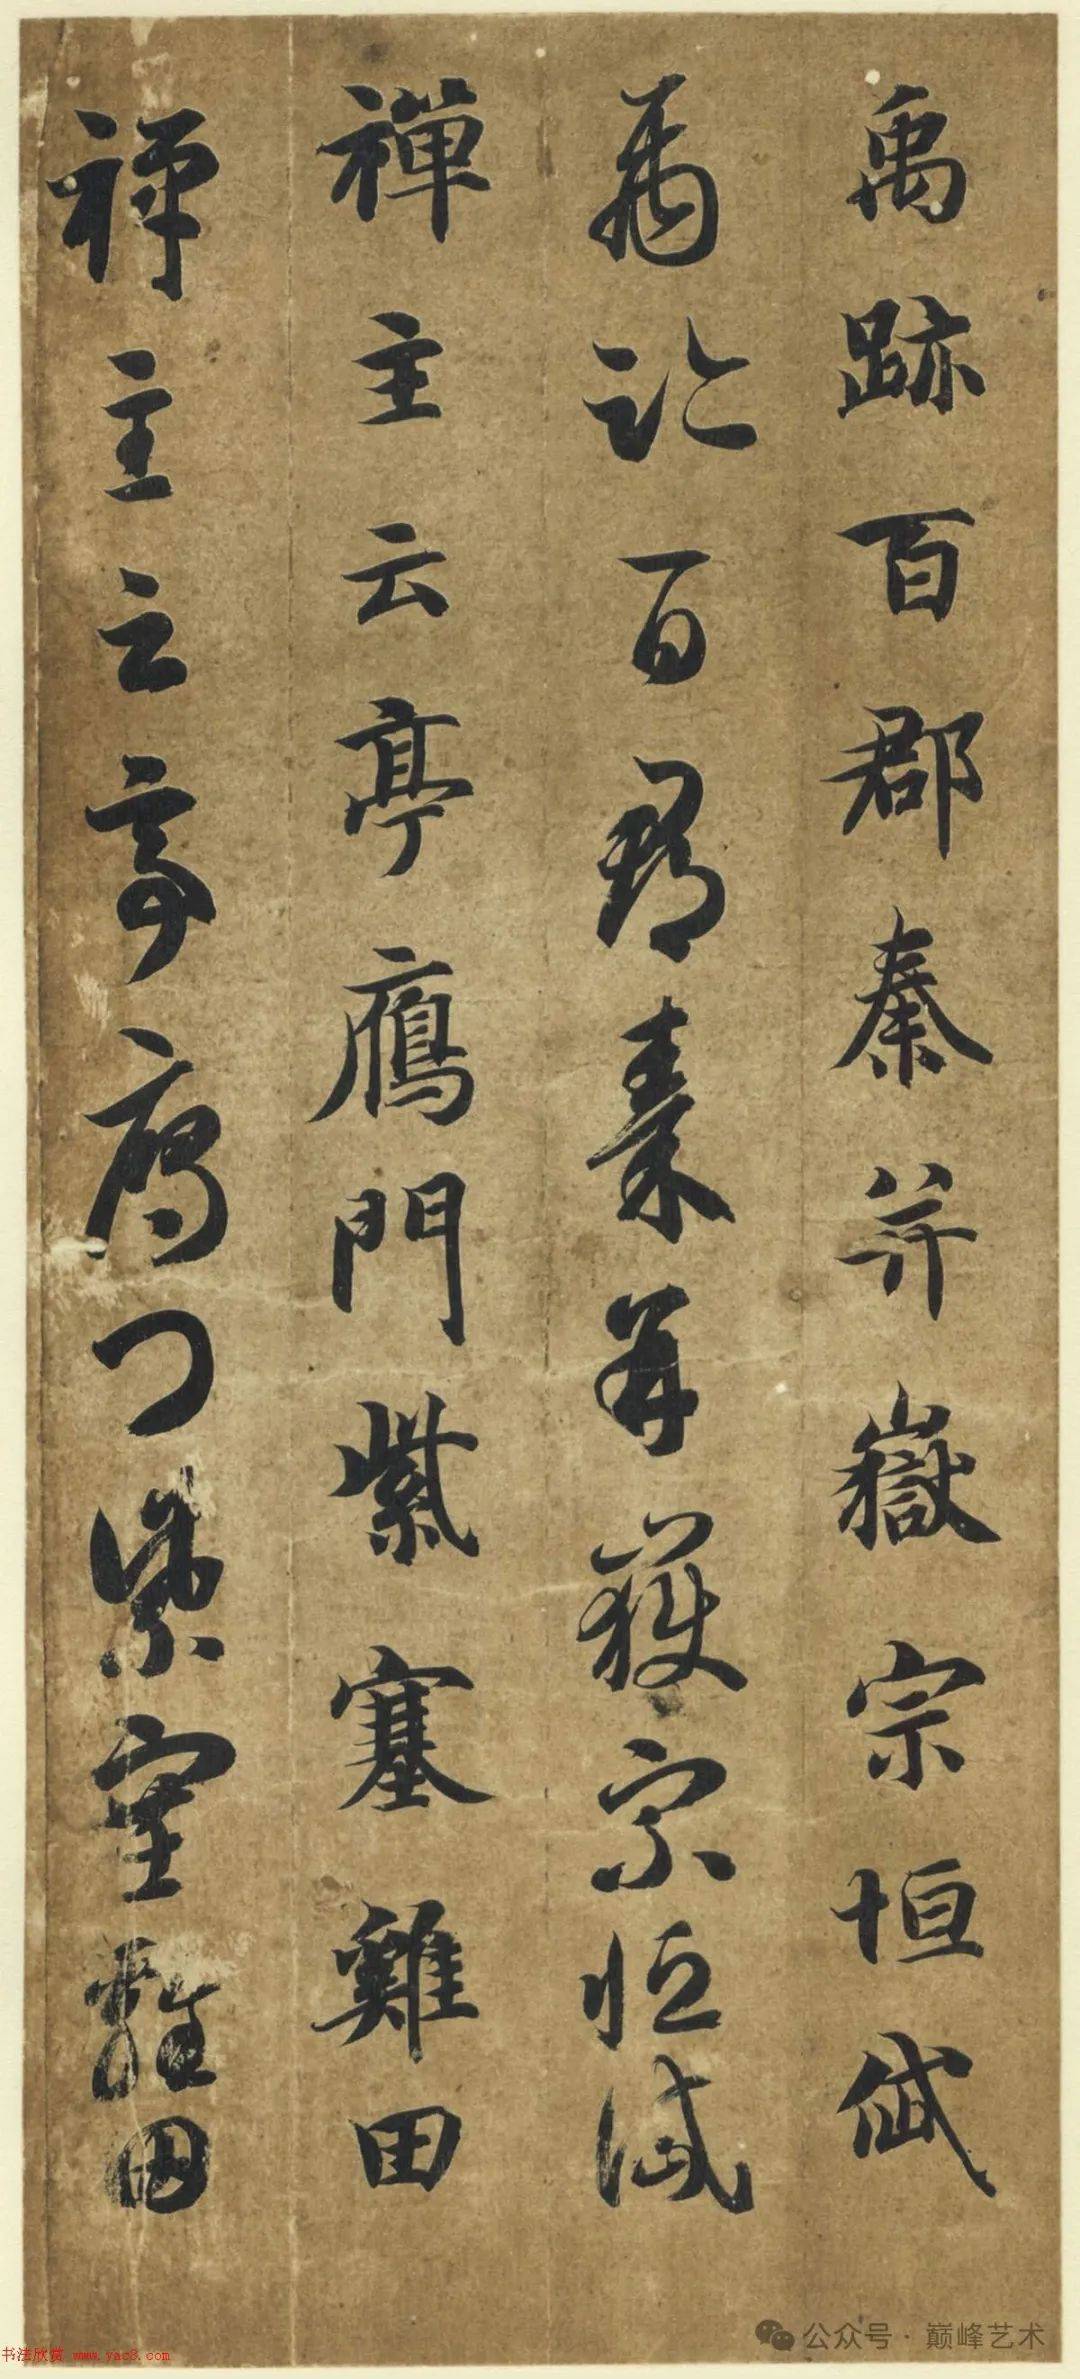 禹跡百郡秦并嶽宗恒岱
禹跡百郡秦并嶽宗恒岱
禪主云亭鴈門紫塞雞田
禪主云亭鴈門紫塞雞田
公众号·巅峰艺术
书法欣赏 www.yac8.com